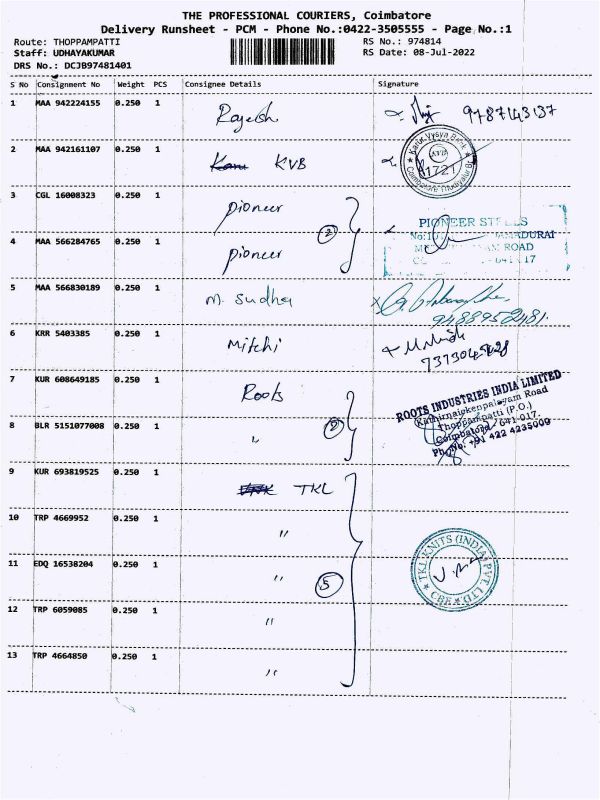 THE PROFESSIONAL COURIERS, Coimbatore
Delivery Runsheet - PCM - Phone No.:0422-3505555 - Page No.:1
Route: THOPPAMPATTI RS No.: 974814
Staff: UDHAYAKUMAR RS Date: 08-Jul-2022
DRS No.: DCJB97481401
S No Consignment No Weight PCS Consignee Details Signature
1 MAA 942224155 0.250 1 Rajesh 9787143137
2 MAA 942161107 0.250 1 KVB
Karur Vysya Bank
1721
3 CGL 16008323 0.250 1 pioneer
PIONEER
ROAD
4 MAA 566284765 0.250 1 pioneer
2
5 MAA 566830189 0.250 1 M. Sudha
9488952481
6 KRR 5403385 0.250 1 Mitchi
7 KUR 608649185 0.250 1 Roots
ROOTS INDUSTRIES INDIA LIMITED
Kathirnaickenpalayam Road
Thoppampatti (P.O.)
Coimbatore - 641 017.
Ph. No: +91 422 4235009
8 BLR 5151077008 0.250 1 "
2
9 KUR 693819525 0.250 1 TKL
10 TRP 4669952 0.250 1 "
11 EDQ 16538204 0.250 1 "
5
TKL KNITS (INDIA) PVT LTD
CBE
12 TRP 6059085 0.250 1 "
13 TRP 4664850 0.250 1 "